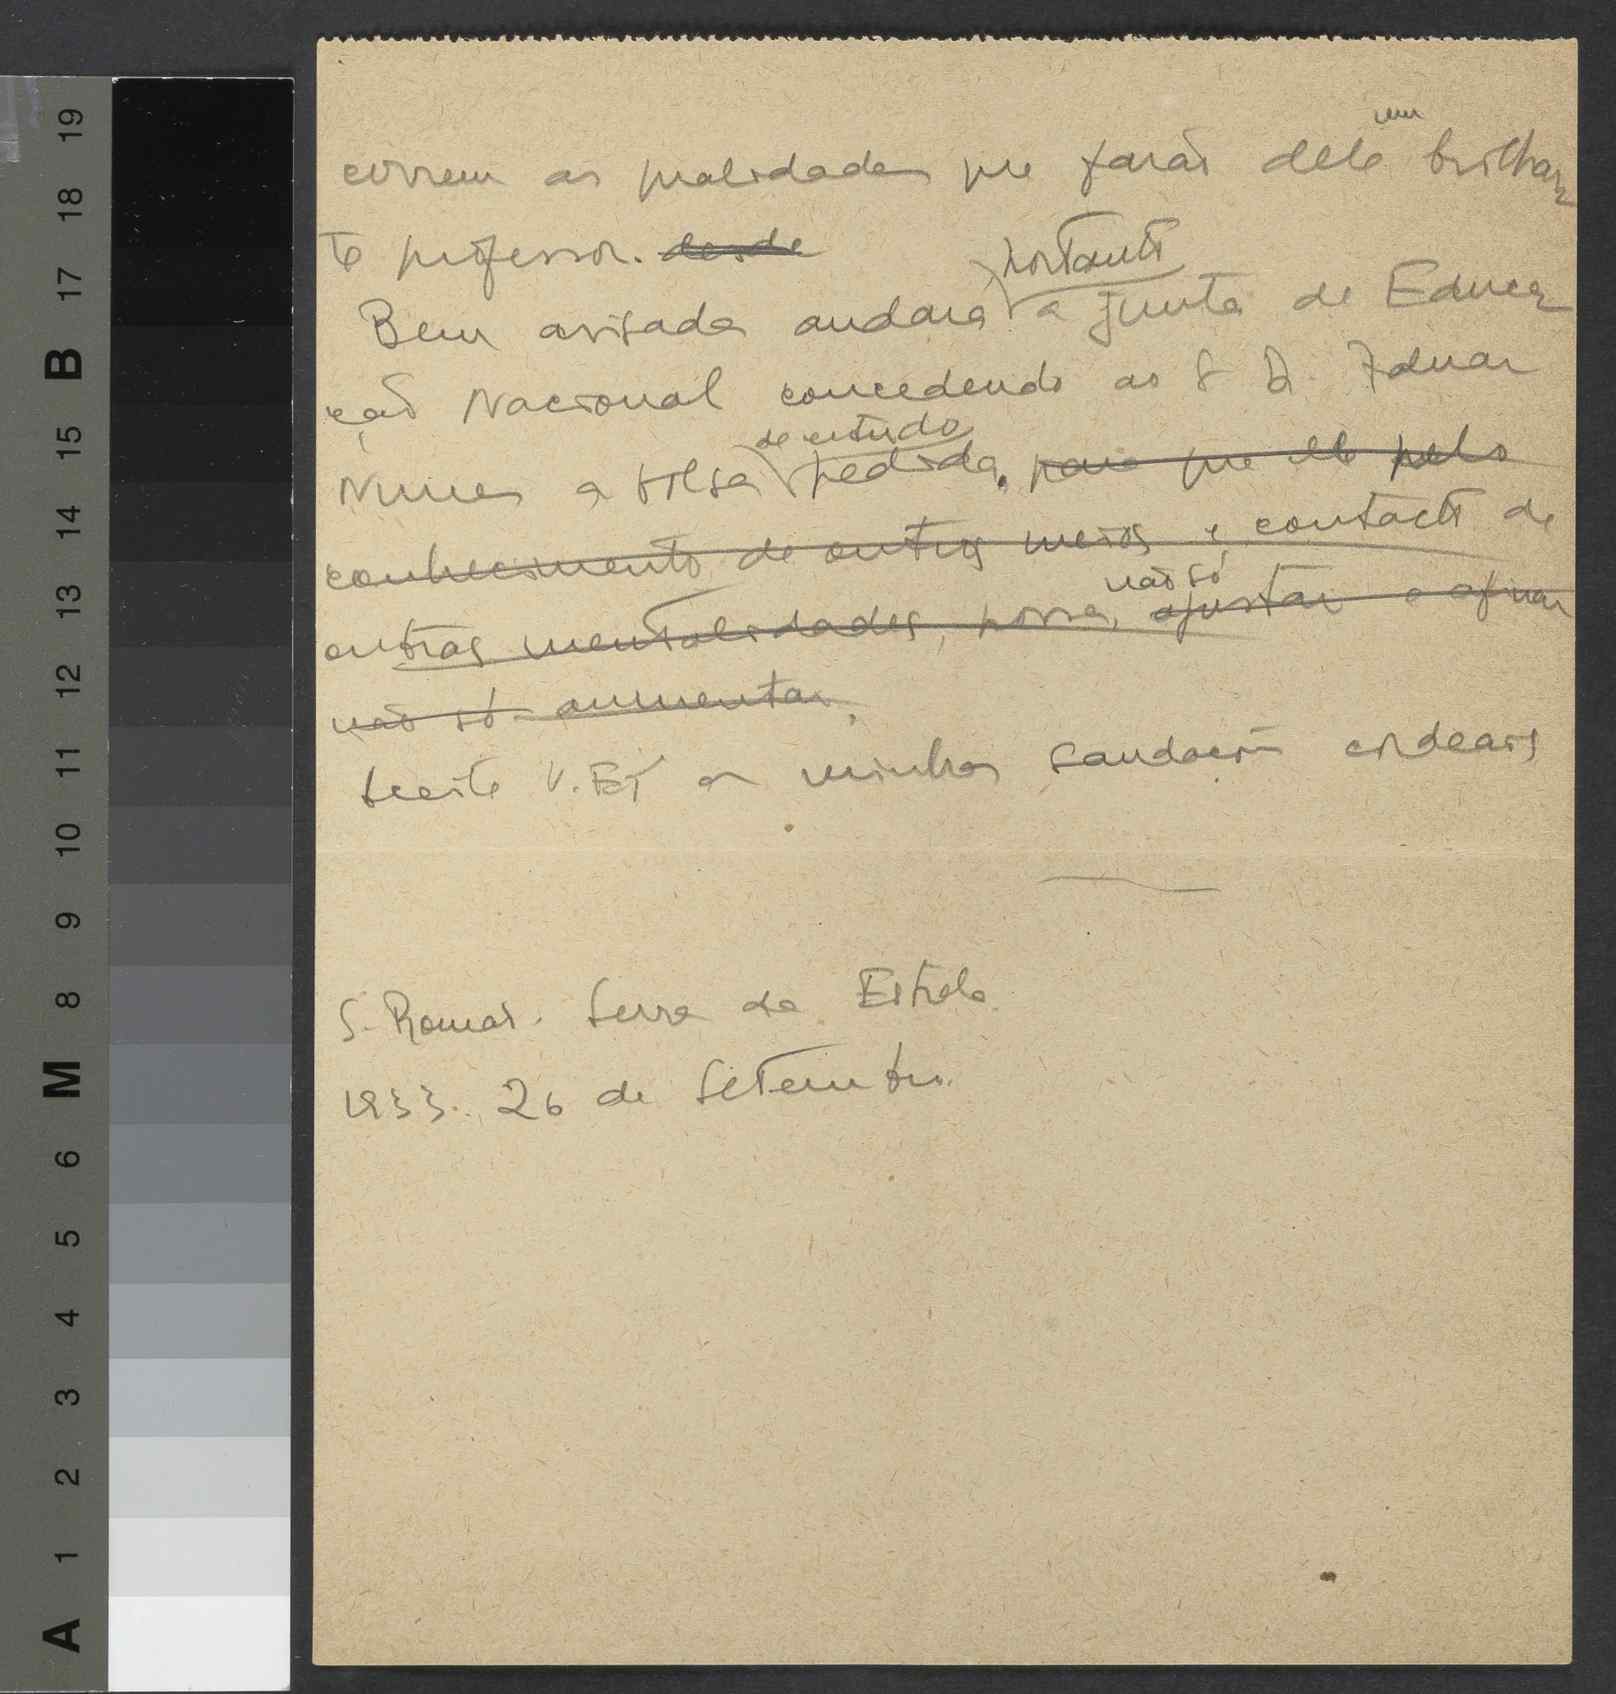 correm as qualidades que farão dele um brilhan
te professor. desde
Bem avisada andará portanto a Junta de Educa
ção Nacional concedendo ao S D.
Nunes a bolsa de estudo pedida. para que ele pelo
conhecimento de outros meios e contacto de
outras mentalidades, possa, não só ajustar e afinar
não só aumentar,
Aceite V. Ex as minhas saudações cordeais
S. Romão. Serra da Estrela.
1933. 26 de Setembro.
19
18
17
B
15
14
13
12
11
10
9
8
M
6
5
4
3
2
1
A